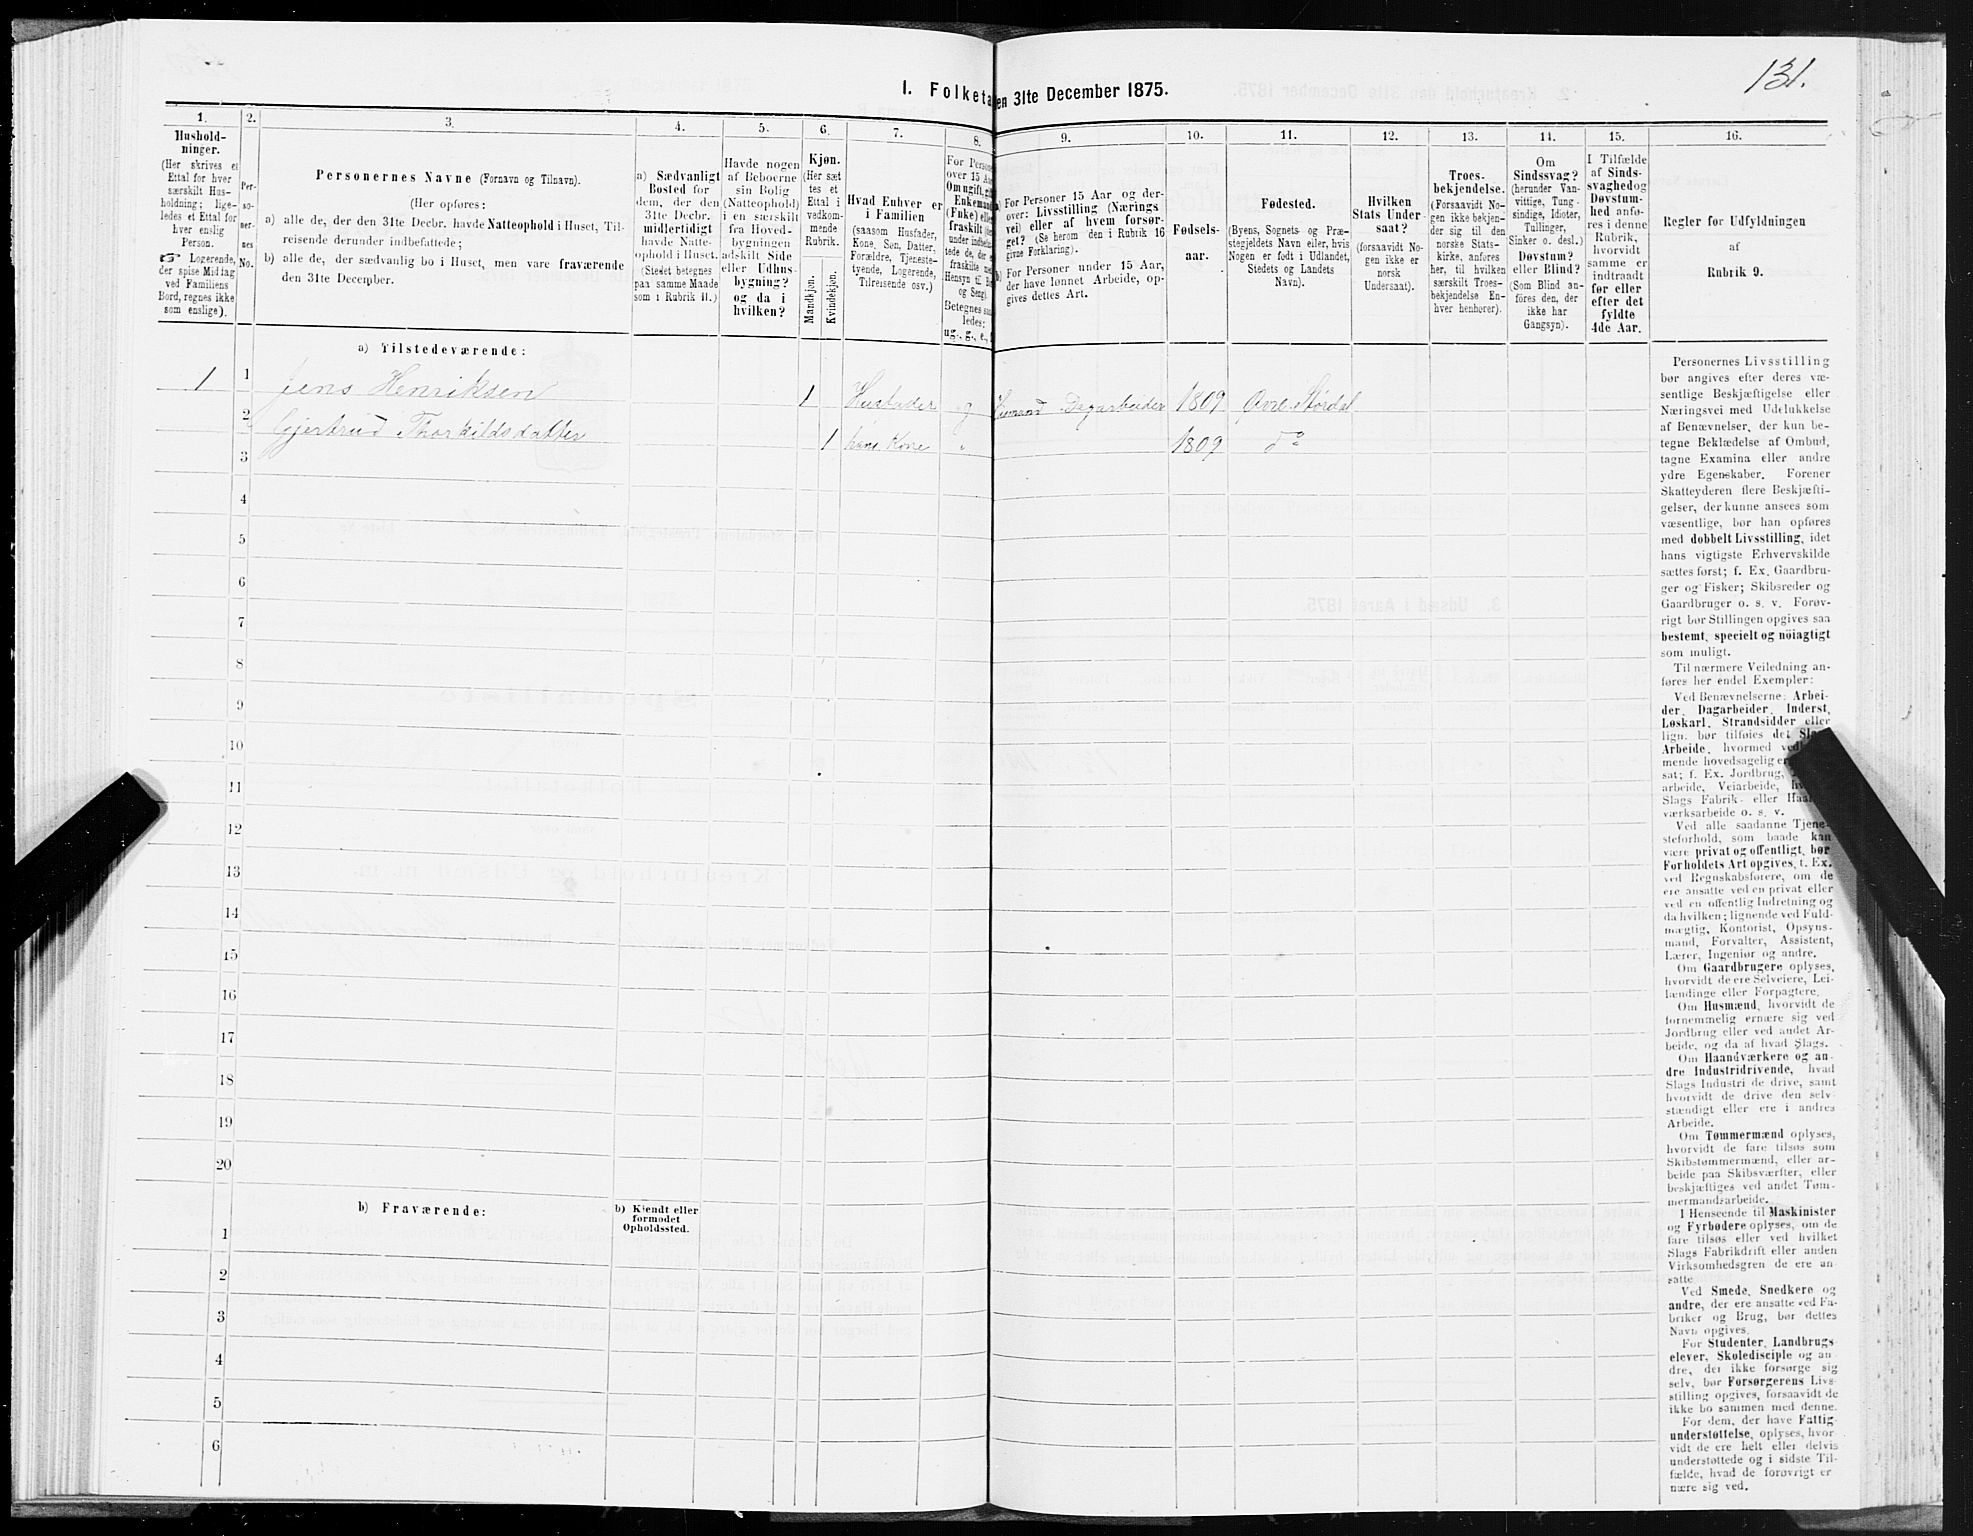 131.
1. Folketa en 31te December 1875.
1.
Hushold-
ninger.
(Her skrives et
Ettal for hver
særskilt Hus-
holdning; lige-
ledes et Ettal for
hver enslig
Person.
☞ Logerende,
der spise Middag
ved Familiens
Bord, regnes ikke
som enslige).
2.
Per-
so-
ner-
nes
No.
3.
Personernes Navne (Fornavn og Tilnavn).
(Her opføres:
a) alle de, der den 31te Decbr. havde Natteophold i Huset, Til-
reisende derunder indbefattede;
b) alle de, der sædvanlig bo i Huset, men vare fraværende
den 31te December.
4.
a) Sædvanligt
Bosted for
dem, der den
31te Decbr.
midlertidigt
havde Natte-
ophold i Huset.
(Stedet betegnes
paa samme Maade
som i Rubrik 11.)
5.
Havde nogen
af Beboerne
sin Bolig
(Natteophold)
i en særskilt
fra Hoved-
bygningen
adskilt Side
eller Udhus-
bygning?
og da i
hvilken?
6.
Kjøn.
(Her sæt
tes et
Ettal i
vedkom-
mende
Rubrik.
Mandkjøn.
Kvindekjøn.
7.
Hvad Enhver er
i Familien
(saasom Husfader,
Kone, Søn, Datter,
Forældre, Tjeneste-
tyende, Logerende,
Tilreisende osv.)
8.
For Persone
over 15 Aa
Om ugift, gif
Enkemand
(Enke) elle
fraskilt
under indbefat
tede de, der e
fraskilte me
Hensyn til Bo
og Seng).
Betegnes saa
ledes:
ug., g., e.,
9.
a) For Personer 15 Aar og der-
over: Livsstilling (Nærings
vei) eller af hvem forsør-
get? (Se herom den i Rubrik 16
givne Forklaring).
b) For Personer under 15 Aar,
der have lønnet Arbeide, op-
gives dettes Art.
10.
Fødsels-
aar.
11.
Fødested.
(Byens, Sognets og Præ-
stegjeldets Navn eller, hvis
Nogen er født i Udlandet,
Stedets og Landets
Navn).
12.
Hvilken
Stats Under-
saat?
(forsaavidt No-
gen ikke er
norsk
Undersaat).
13.
Troes-
bekjendelse.
(Forsaavidt No-
gen ikke bekjen-
der sig til den
norske Stats-
kirke, anføres
her, til hvilken
særskilt Troes-
bekjendelse En-
hver henhører).
14.
Om
Sindssvag?
(herunder Van-
vittige, Tung-
sindige, Idioter,
Sinker o. desl.)
Døvstum?
eller Blind?
(Som Blind an-
føres den, der
ikke har
Gangsyn).
15.
I Tilfælde
af Sinds-
svaghed og
Døvstum-
hed anfø-
res i denne
Rubrik,
hvorvidt
samme er
indtraadt
før eller
efter det
fyldte
4de Aar.
16.
Regler for Udfyldningen
af
Rubrik 9.
a) Tilstedeværende:
1 1 Jens Henriksen 1 Husfader g Husmand Dagarbeider 1809 Øvre Størdal
2 Gjertrud Thorkildsdatter 1 hans Kone " 1809 do
3
4
5
6
7
8
9
10
11
12
13
14
15
16
17
18
19
20
b) Fraværende:
b) Kjendt eller
formodet
Opholdssted.
1
2
3
4
5
6
Personernes Livsstilling
bør angives efter deres væ-
sentlige Beskjæftigelse eller
Næringsvei med Udelukkelse
af Benævnelser, der kun be-
tegne Beklædelse af Ombud,
tagne Examina eller andre
ydre Egenskaber. Forener
Skatteyderen flere Beskjæfti-
gelser, der kunne ansees som
væsentlige, bør han opføres
med dobbelt Livsstilling, idet
hans vigtigste Erhvervskilde
sættes først; f. Ex. Gaardbru-
ger og Fisker; Skibsreder og
Gaardbruger o. s. v. Forøv-
rigt bør Stillingen opgives saa
bestemt, specielt og nöiagtigt
som muligt.
Til nærmere Veiledning an-
føres her endel Exempler:
Ved Benævnelserne: Arbei-
der, Dagarbeider, Inderst,
Løskarl, Strandsidder eller
lign. bør tilføies det Slags
Arbeide, hvormed ved
mende hovedsagelig er
sat; f. Ex. Jordbrug,
arbeide, Veiarbeide,
Slags Fabrik- eller Haa
værksarbeide o. s. v.
Ved alle saadanne Tjene-
steforhold, som baade kan
være privat og offentligt, bør
Forholdets Art opgives, f. Ex.
ved Regnskabsførere, om de
ere ansatte ved en privat eller
ved en offentlig Indretning og
da hvilken; lignende ved Fuld-
mægtig, Kontorist, Opsyns-
mand, Forvalter, Assistent,
Lærer, Ingeniør og andre.
Om Gaardbrugere oplyses,
hvorvidt de ere Selveiere, Lei-
lændinge eller Forpagtere.
Om Husmænd, hvorvidt de
fornemmelig ernære sig ved
Jordbrug eller ved andet Ar-
beide, og da af hvad Slags.
Om Haandværkere og an-
dre Industridrivende, hvad
Slags Industri de drive, samt
hvorvidt de drive den selv-
stændigt eller ere i andres
Arbeide.
Om Tømmermænd oplyses,
hvorvidt de fare tilsøs som
Skibstømmermænd, eller ar-
beide paa Skibsværfter, eller
beskjæftiges ved andet Tøm-
mermandsarbeide.
I Henseende til Maskinister
og Fyrbødere oplyses, om de
fare tilsøs eller ved hvilket
Slags Fabrikdrift eller anden
Virksomhedsgren de ere an-
satte
Ved Smede, Snedkere og
andre, der ere ansatte ved Fa-
briker og Brug, bør dettes
Navn opgives.
For Studenter, Landbrugs-
elever, Skoledisciple og an-
dre, der ikke forsørge sig
selv, bør Forsørgerens Livs-
stilling opgives, forsaavidt de
ikke bo sammen med denne.
For dem, der have Fattig-
understøttelse, oplyses, hvor-
vidt de ere helt eller delvis
understøttede og i sidste Til-
fælde, hvad de forøvrigt er
nære sig ved.